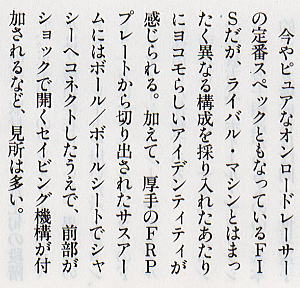 今やピュアなオンロードレーサー
の定番スペックともなっているFI
Sだが、ライバル・マシンとはまっ
たく異なる構成を採り入れたあたり
にヨコモらしいアイデンティティが
感じられる。加えて、厚手のFRP
プレートから切り出されたサスアー
ムにはボール／ボールシートでシャ
シーへコネクトしたうえで、前部が
ショックで開くセイビング機構が付
加されるなど、見所は多い。